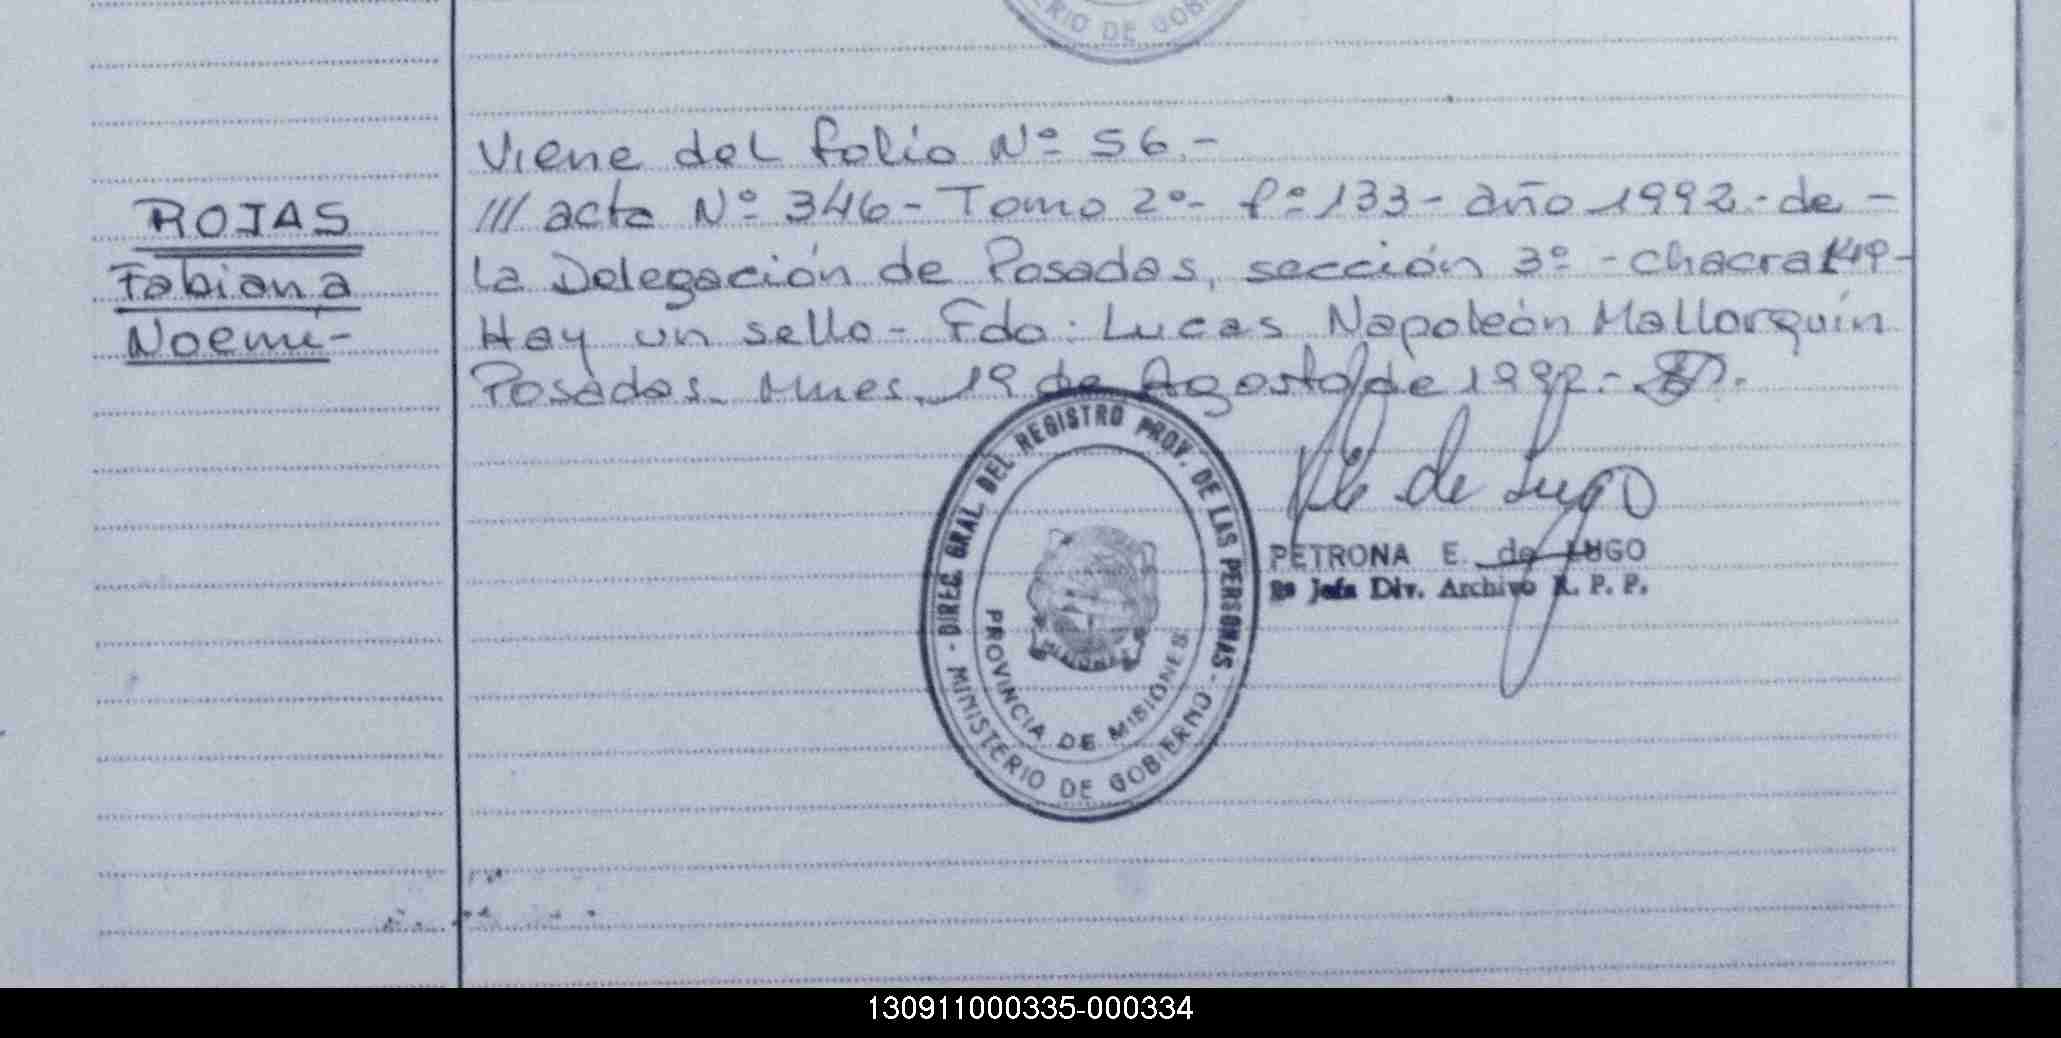 RIO DE GOB
Viene del folio Nº 56.-
ROJAS
Fabiana
Noemí-
/// acta Nº 346 - Tomo 2º- fº 133 - año 1992.- de -
la Delegación de Posadas, sección 3º - chacra 149-
Hay un sello - Fdo: Lucas Napoleón Mallorquín
Posadas. Mnes, 19 de Agosto de 1992.-
DIREC. GRAL. DEL REGISTRO PROV. DE LAS PERSONAS -
MINISTERIO DE GOBIERNO -
PROVINCIA DE MISIONES
MISIONES
de Lugo
PETRONA E. de LUGO
Jefa Div. Archivo R. P. P.
130911000335-000334